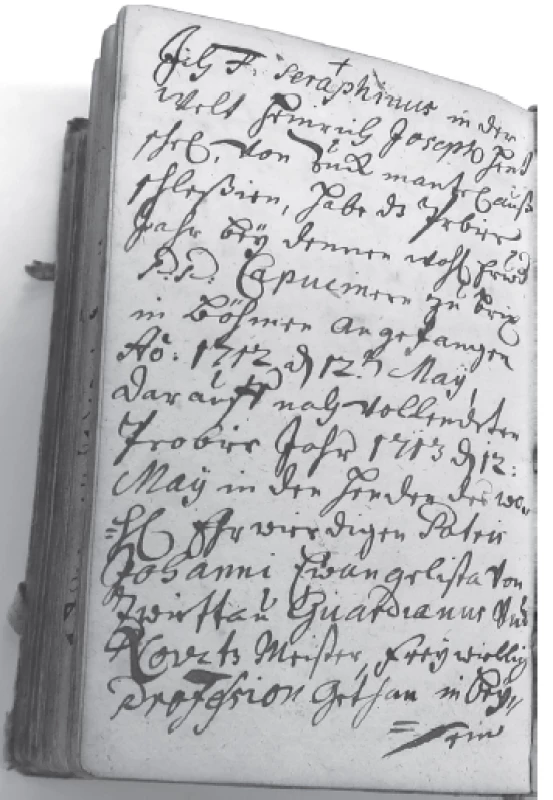 Ich F. Seraphinus in der
Welt Heinrich Joseph Hent
schel, von Zuck mantel auß
schleßien, habe dz Probier
Jahr beÿ dennen wohl Ehrwd
P.P. Capucinern zu Brix
in Böhmen angefangen
Aõ: 1712 d 12.t May,
darauff nach vollendeten
Probier Jahr 1713 d 12:
May in den Henden des wo-
=hl Ehrwierdigen Patris
Johanni Ewangelista von
Zwittau Guardianus Vnd
Novitz Meister, freÿ willig
Profession Gethan in beÿ//
=sein